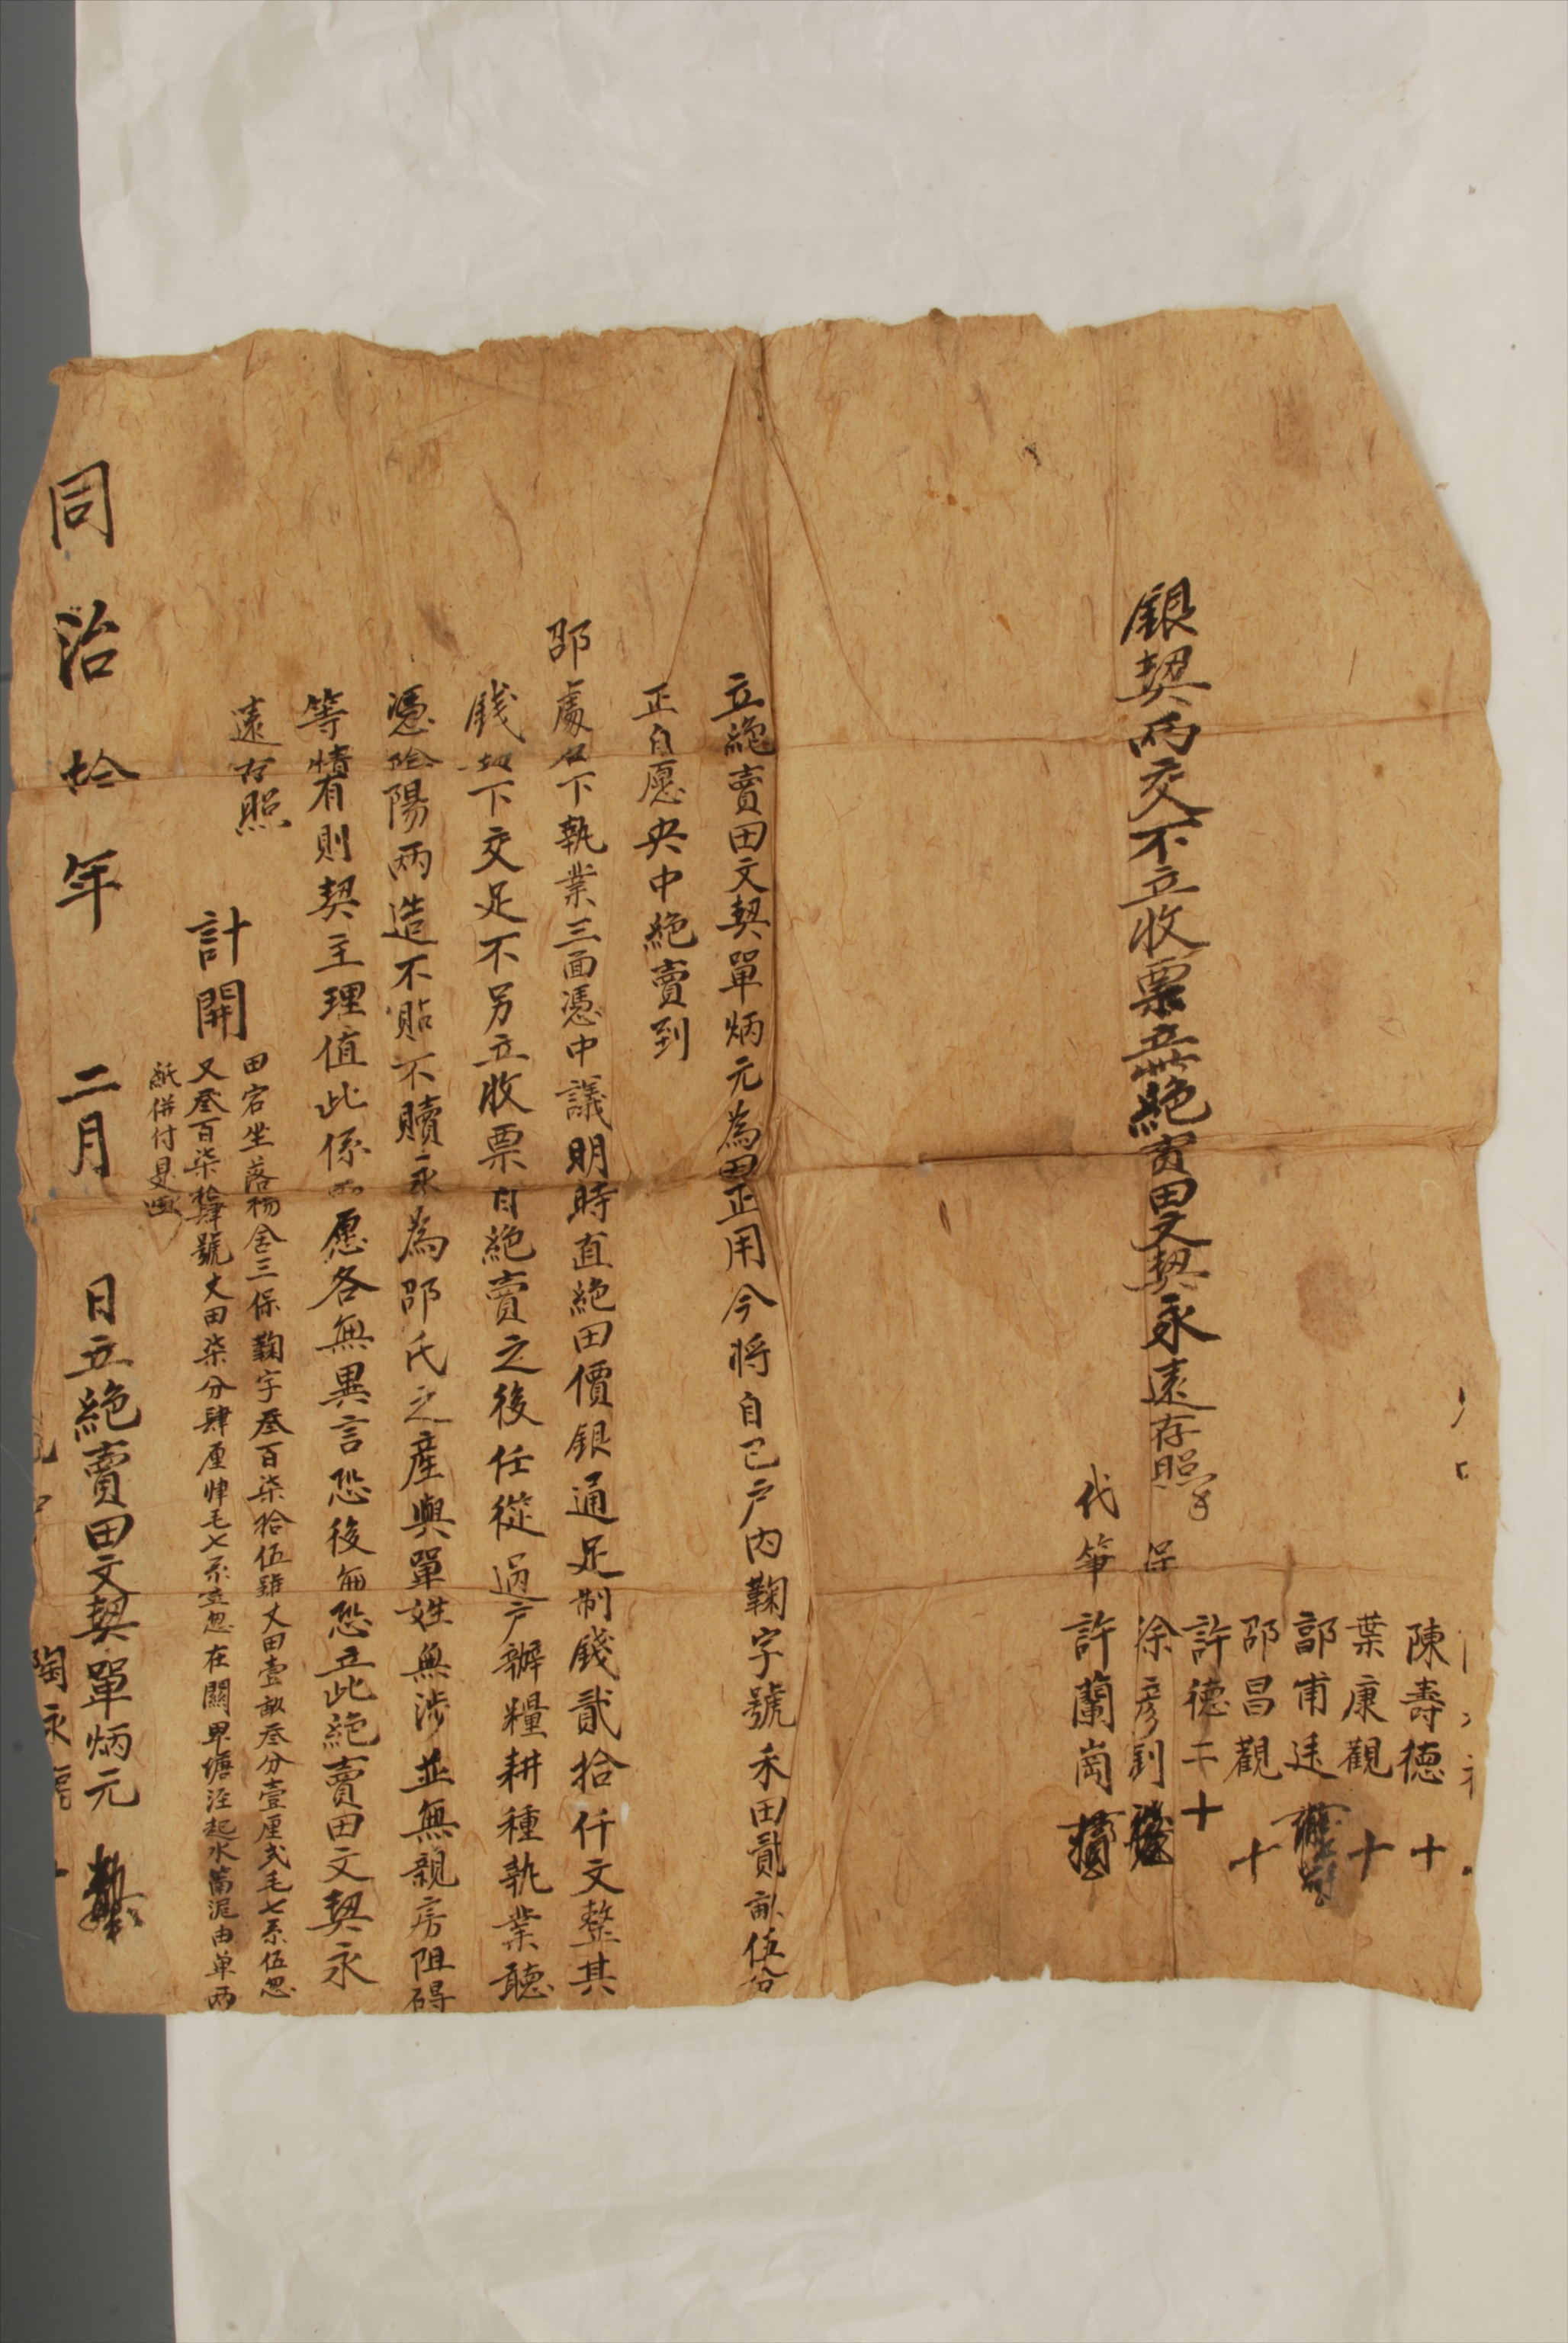 立絶賣田文契單炳元為田正用今將自己戶内鞠字號禾田貳畝伍分
正自愿央中絶賣到
邵處名下執業三面憑中議明時直絶田價銀通足制錢貳拾仟文整其
錢契下交足不另立收票自絶賣之後任從過戶辦糧耕種執業聽
憑陰陽兩造不貼不贖永為邵氏之產與單姓無涉並無親房阻碍
等情有則契主理值此係兩愿各無異言恐後無恐立此絶賣田文契永
遠存照
計開
田宕坐落楊舍三保鞠字叁百柒拾伍號丈田壹畝叁分壹厘弍毛七系伍忽
又叁百柒拾肆號丈田柒分肆厘肆毛七系壹忽在關界塘注起水萬泥由单两
紙併付
同治拾年二月日立絶賣田文契單炳元
陶永
陳壽德十
葉康觀十
部甫廷
邵昌觀十
許德二十
保徐彦釗
代筆許蘭崗
銀契兩交不立收票並絶賣田文契永遠存照